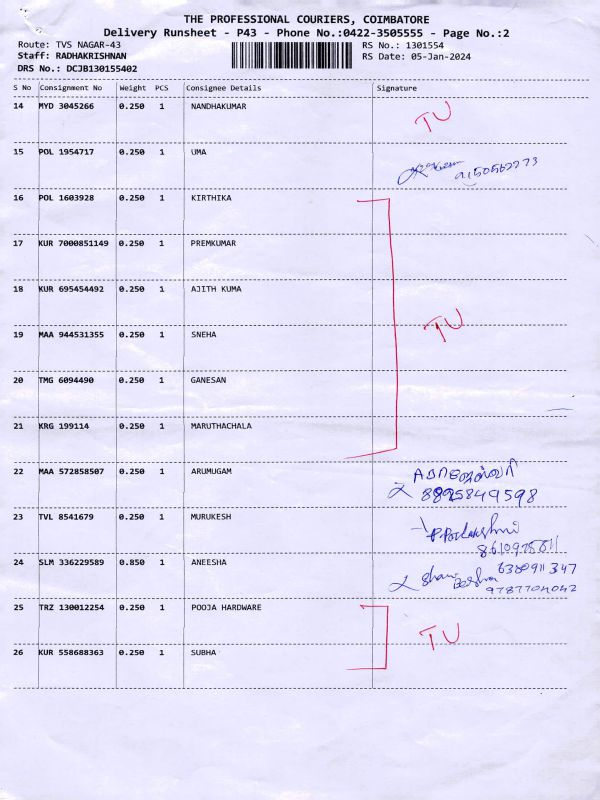 THE PROFESSIONAL COURIERS, COIMBATORE
Delivery Runsheet - P43 - Phone No.:0422-3505555 - Page No.:2
Route: TVS NAGAR-43 RS No.: 1301554
Staff: RADHAKRISHNAN RS Date: 05-Jan-2024
DRS No.: DCJB130155402
S No Consignment No Weight PCS Consignee Details Signature
14 MYD 3045266 0.250 1 NANDHAKUMAR TU
15 POL 1954717 0.250 1 UMA
16 POL 1603928 0.250 1 KIRTHIKA
17 KUR 7000851149 0.250 1 PREMKUMAR
18 KUR 695454492 0.250 1 AJITH KUMA
19 MAA 944531355 0.250 1 SNEHA TU
20 TMG 6094490 0.250 1 GANESAN
21 KRG 199114 0.250 1 MARUTHACHALA
22 MAA 572858507 0.250 1 ARUMUGAM
8825849598
23 TVL 8541679 0.250 1 MURUKESH
24 SLM 336229589 0.850 1 ANEESHA 6380911347
9787704042
25 TRZ 130012254 0.250 1 POOJA HARDWARE TU
26 KUR 558688363 0.250 1 SUBHA